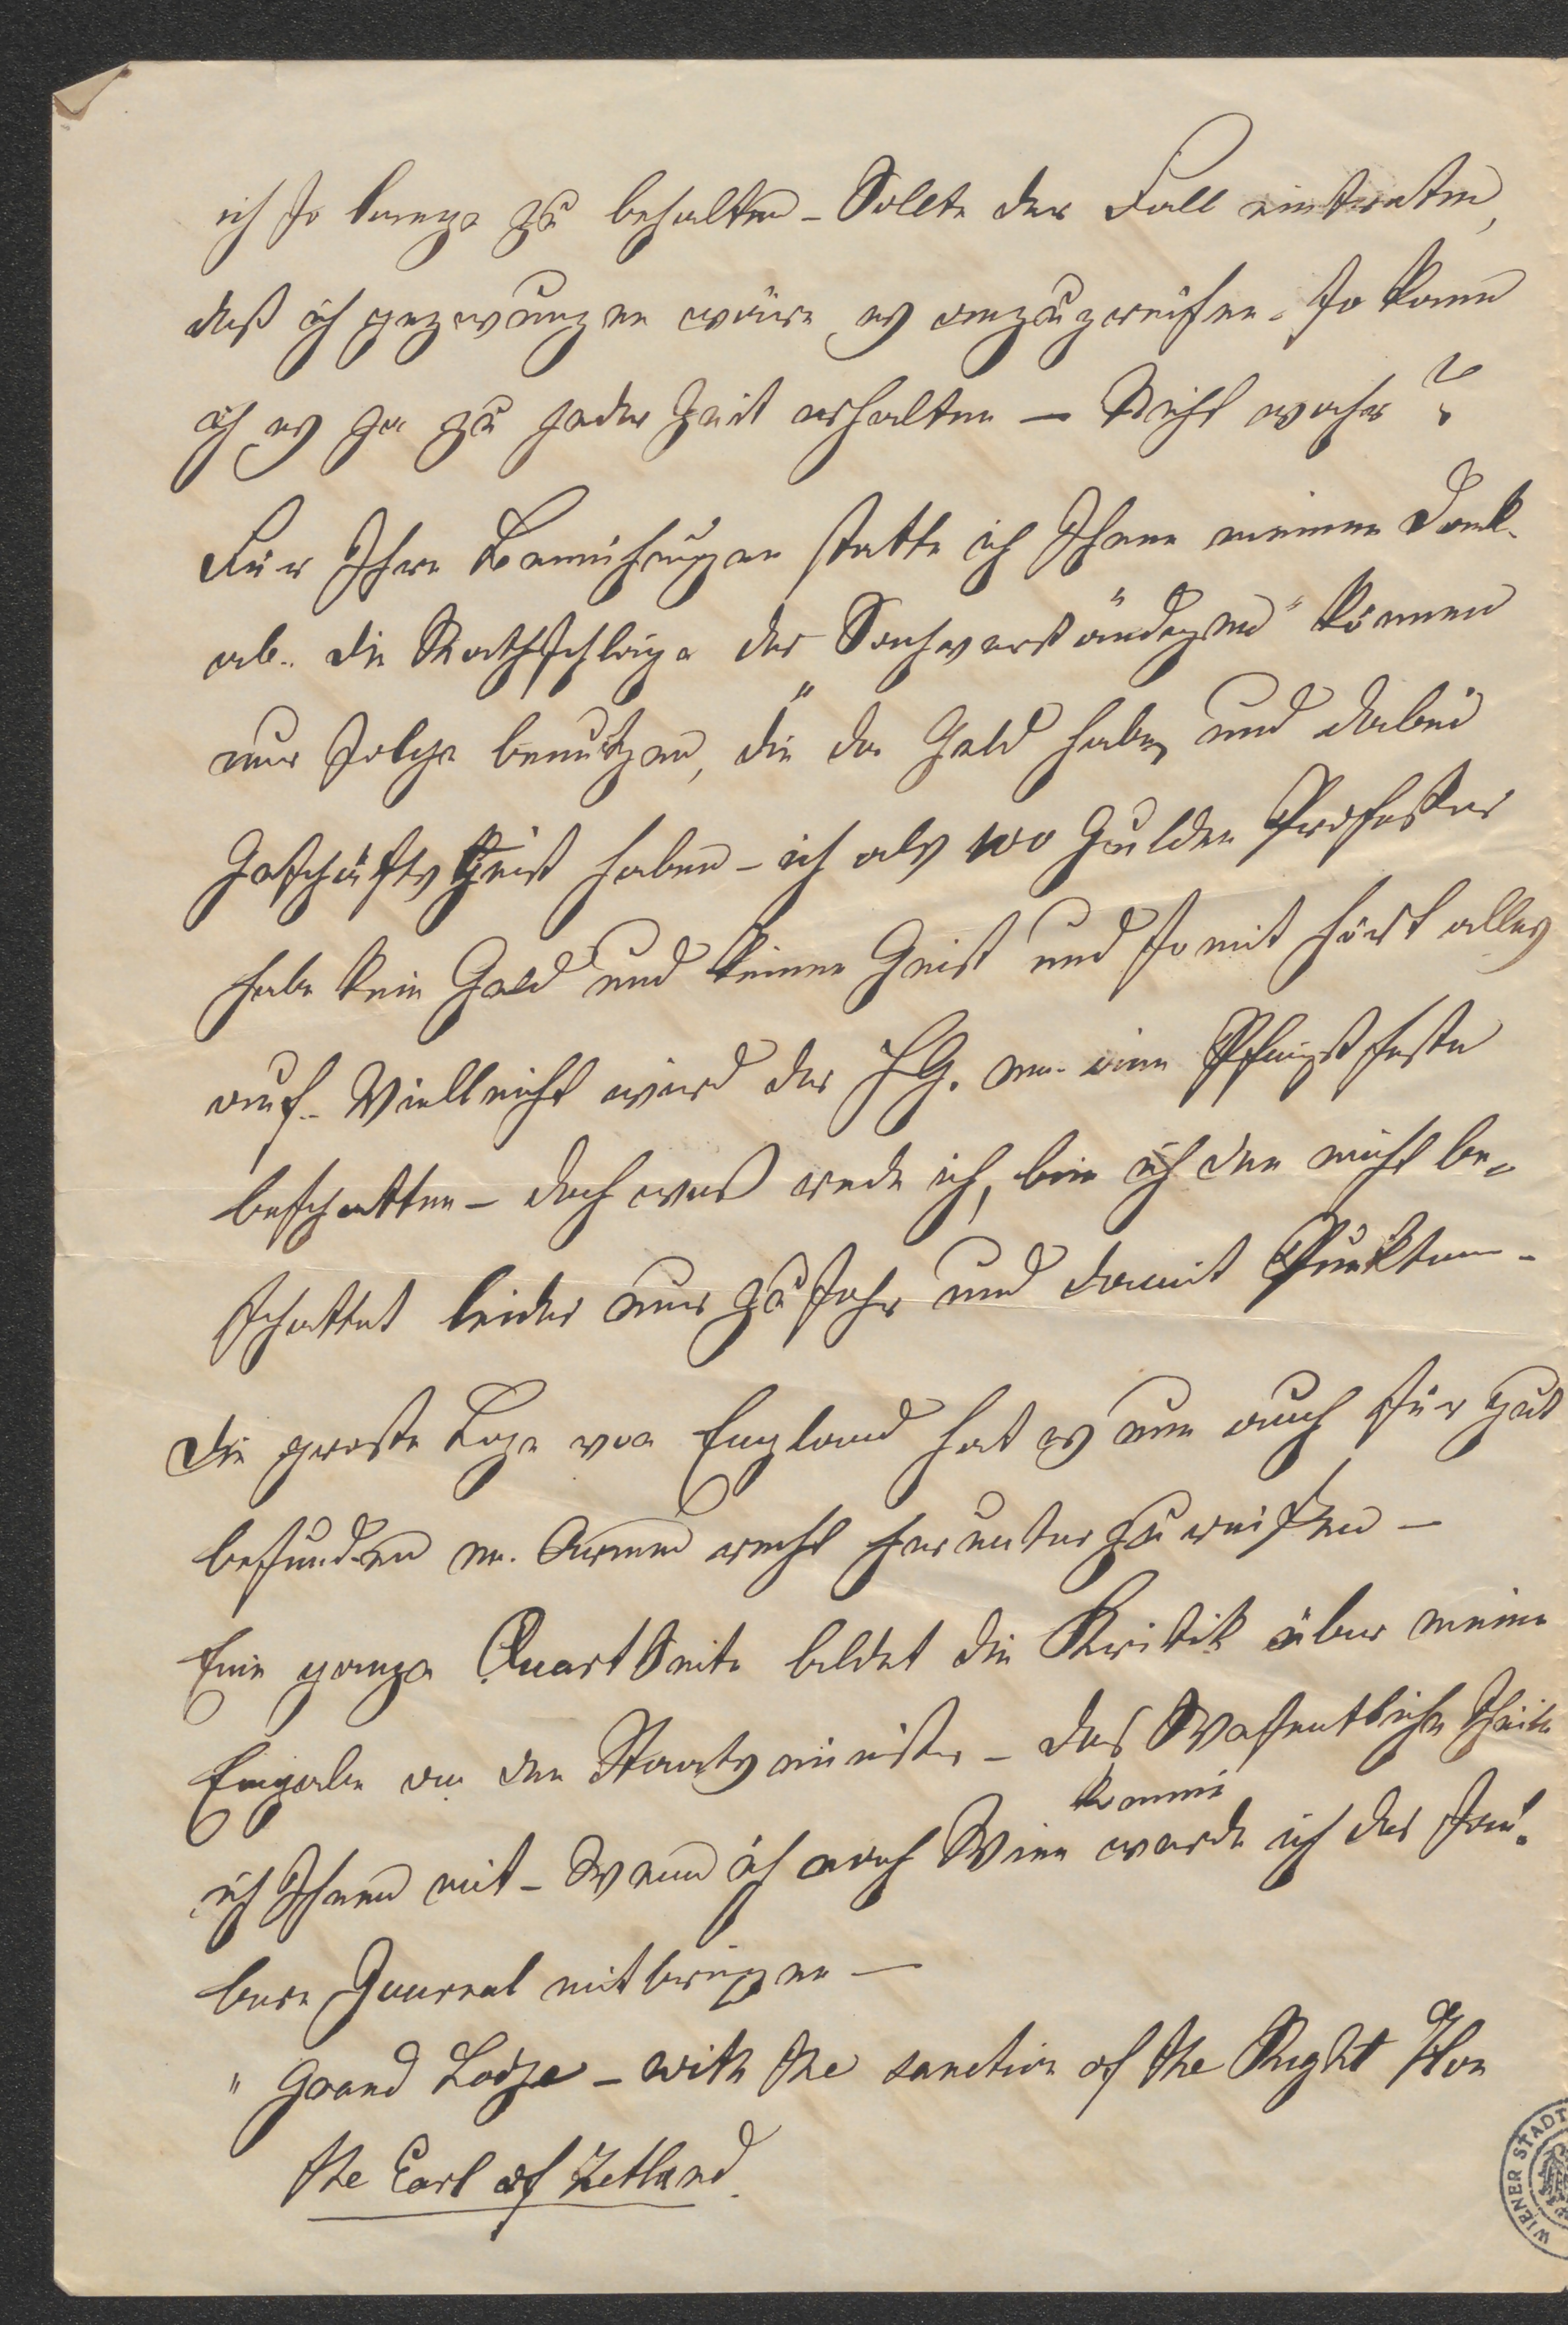 ich so lange zu behalten – Sollte der Fall eintreten,
daß ich gezwungen wäre es anzugreifen – so kann
ich es ja zu jeder Zeit erhalten – Nicht wahr?
Für Ihre Bemühungen statte ich Ihnen meinen Dank
ab. die Rathschläge der "Sachverständigen" können
nur solche benutzen, die da Geld haben und dabei
Geschäfts Geist haben – ich als 100 Gulden Professor
habe kein Geld und keinen Geist und somit hört alles
auf – Vielleicht wird der Hlg. m. im Pfingstfeste
beschatten – doch was rede ich, bin ich den nicht be-
schattet leider nur zu sehr und damit Punktum –
Die groste Loge von England hat es nun auch für gut
befunden m. Armen recht herunter zu reißen –
Eine ganze QuartSeite bildet die Kritik über meine
Eingabe an den Staatsminister – das Wesentliche theile
ich Ihnen mit – Wenn ich nach Wien komme werde ich das sau-
bere Journal mitbringen –
"Grand Lodge – with the sanction of the Right Hon
the Earl of Zetland.
WIENER STADT